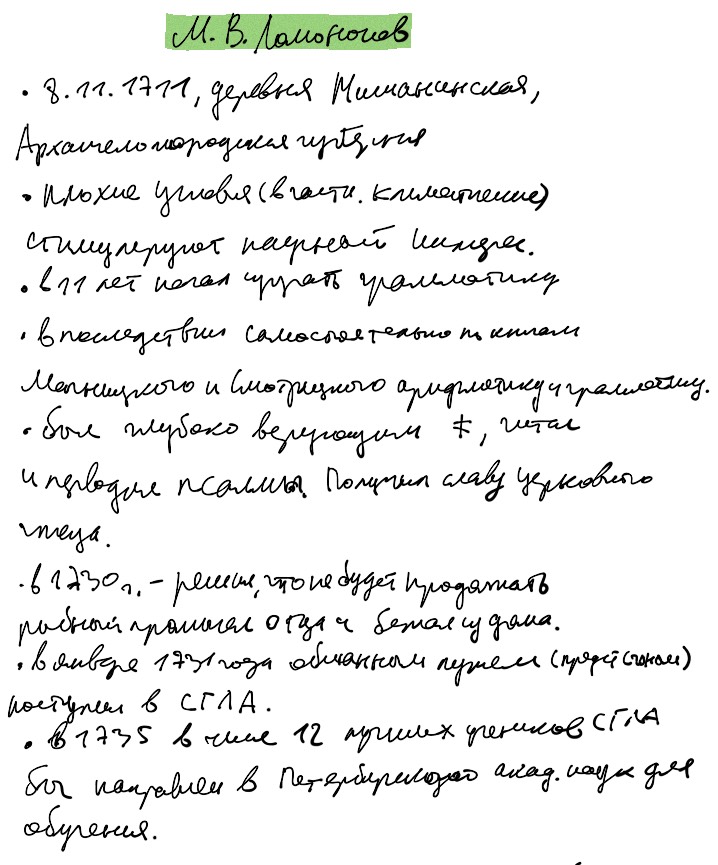 М. В. Ломоносов
• 8.11.1711, деревня Мишанинская,
Архангелогородская губерния
• Плохие условия (в части. климатические)
стимулируют научный интерес.
• в 11 лет начал изучать грамматику
• в последствии самостоятельно по книгам
Магницкого и Смотрицкого арифметику и грамматику.
• был глубоко верующим, читал
и переводил псалмы. Получил славу церковного
чтеца.
• в 1730 г. – решил, что не будет продолжать
рыбный промысел отца и бежал из дома.
• в январе 1731 года обманным путем
поступил в СГЛА.
• в 1735 в числе 12 лучших учеников СГЛА
был направлен в Петербургскую акад. наук для
обучения.